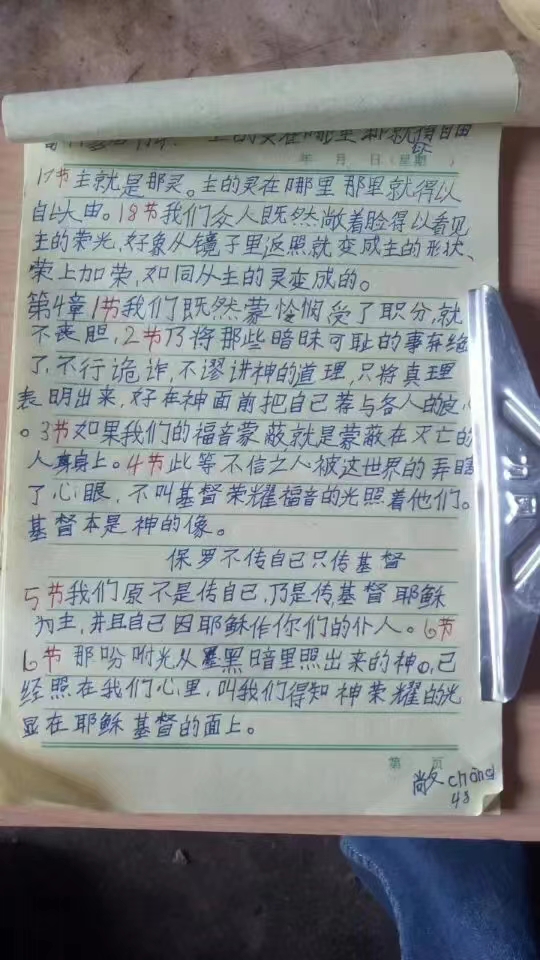 主的灵在哪里,那就得自由
年 月 日(星期 )
17节主就是那灵。主的灵在哪里那里就得以
自由。18节我们众人既然敞着脸得以看见
主的荣光,好象从镜子里返照就变成主的形状、
荣上加荣,如同从主的灵变成的。
第4章1节我们既然蒙怜悯受了职分,就
不丧胆,2节乃将那些暗昧可耻的事弃绝
了,不行诡诈,不谬讲神的道理,只将真理
表明出来,好在神面前把自己荐与各人的良心
。3节如果我们的福音蒙蔽,就是蒙蔽在灭亡的
人身上。4节此等不信之人被这世界的弄瞎
了心眼,不叫基督荣耀福音的光照着他们。
基督本是神的像。
保罗不传自己只传基督
5节我们原不是传自己,乃是传基督耶稣
为主,并且自己因耶稣作你们的仆人。6节
6节那吩咐光从黑暗里照出来的神。已
经照在我们心里,叫我们得知神荣耀的光
显在耶稣基督的面上。
第 页
敞chǎng
48